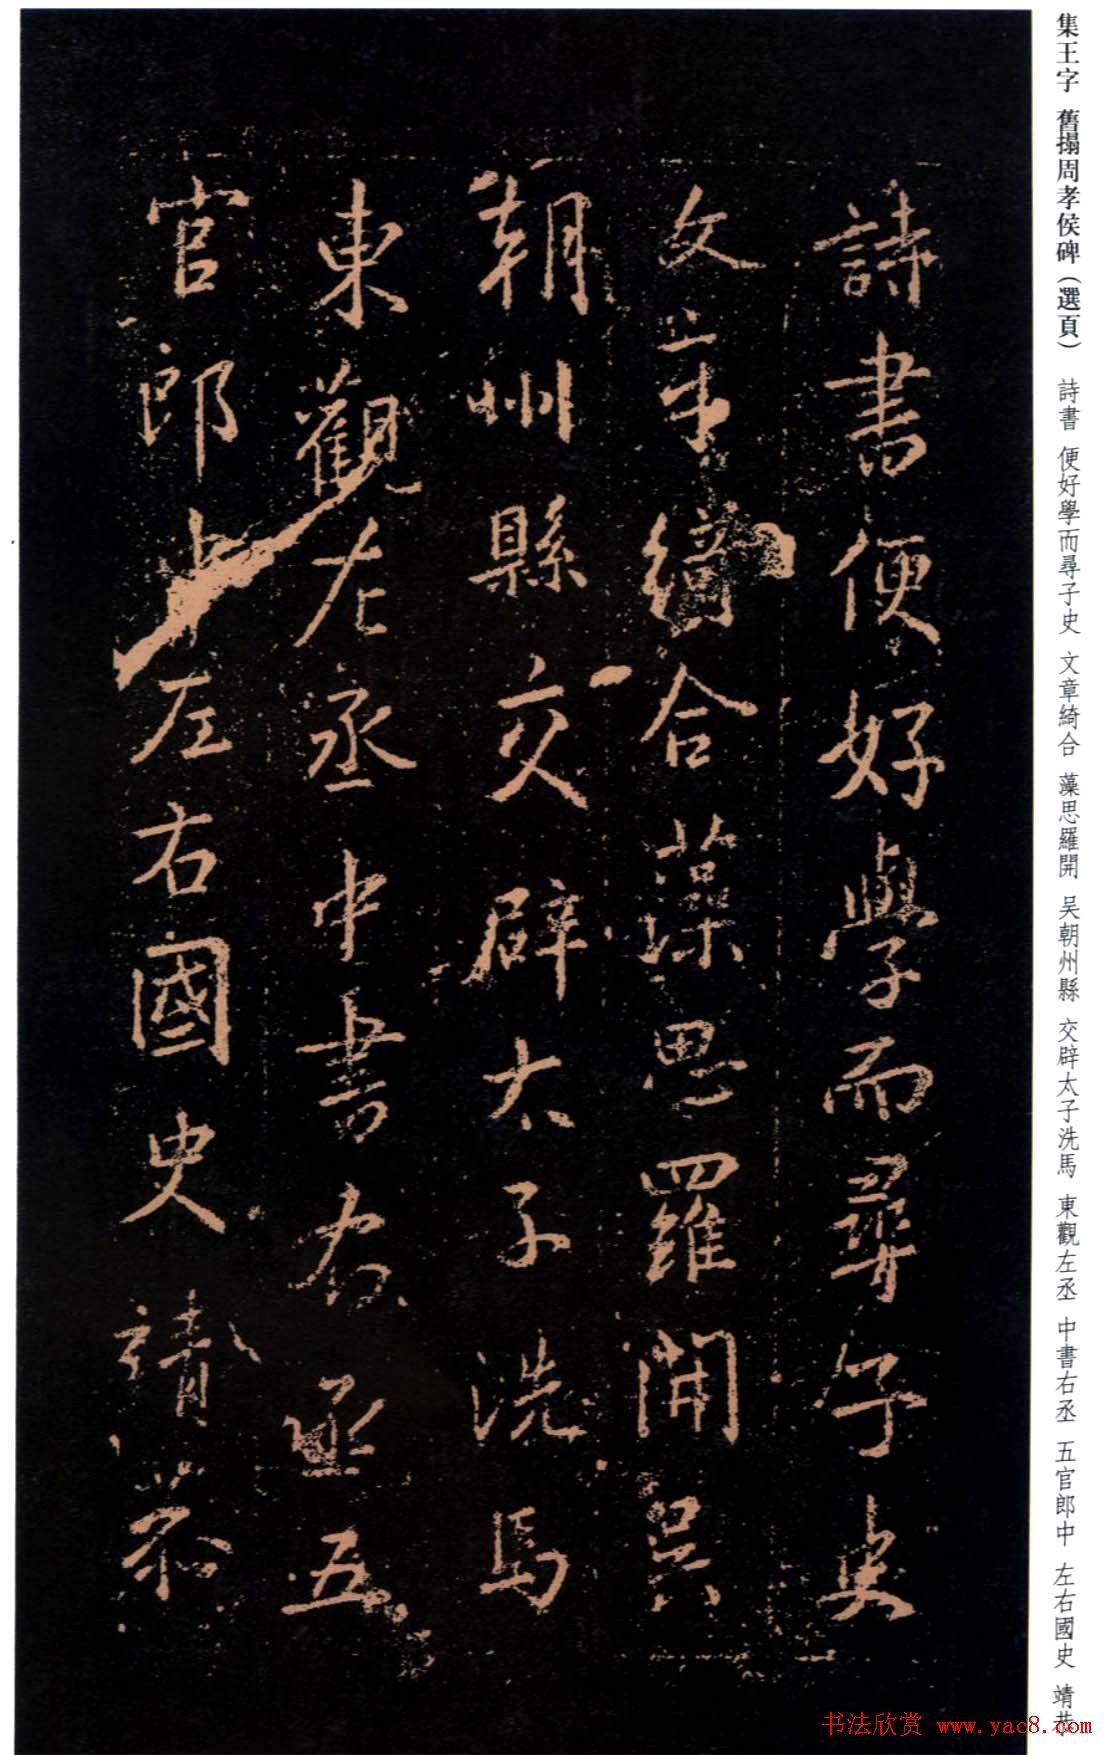 集王字 舊搨周孝侯碑(選頁) 詩書 便好學而尋子史 文章綺合 藻思羅開 吴朝州縣 交辟太子洗馬 東觀左丞 中書右丞 五官郎中 左右國史 靖恭
詩書便好學而尋子史
文章綺合藻思羅開吴
朝州縣交辟太子洗馬
東觀左丞中書右丞五
官郎中左右國史靖恭
书法欣赏 www.yac8.com